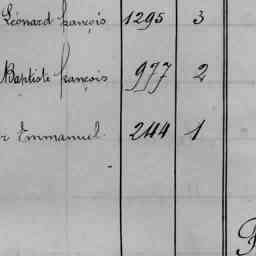 Léonard françois 1295 3
Baptiste françois 977 2
r Emmanuel 244 1